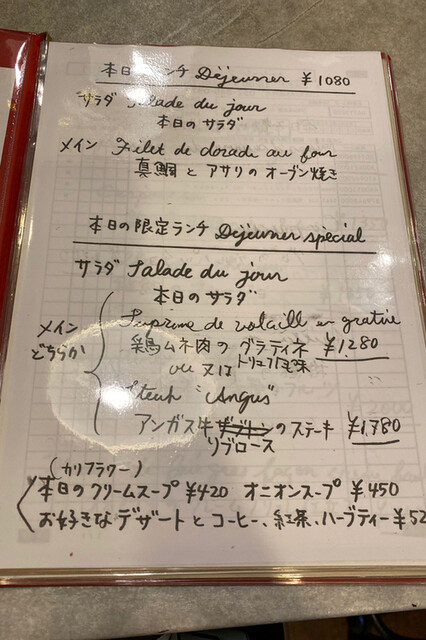 本日のランチ Déjeuner ¥1080
サラダ Salade du jour
本日のサラダ
メイン Filet de dorade au four
真鯛とアサリのオーブン焼き
本日の限定ランチ Déjeuner spécial
サラダ Salade du jour
本日のサラダ
メイン どちらか
Suprême de volaill en gratine
鶏ムネ肉のグラティネ ¥1,280
トリュフ風味
ou 又は
Steak "Angus"
アンガス牛ザブトンのステーキ ¥1,780
リブロース
(カリフラワー)
本日のクリームスープ ¥420 オニオンスープ ¥450
お好きなデザートとコーヒー、紅茶、ハーブティー ¥52